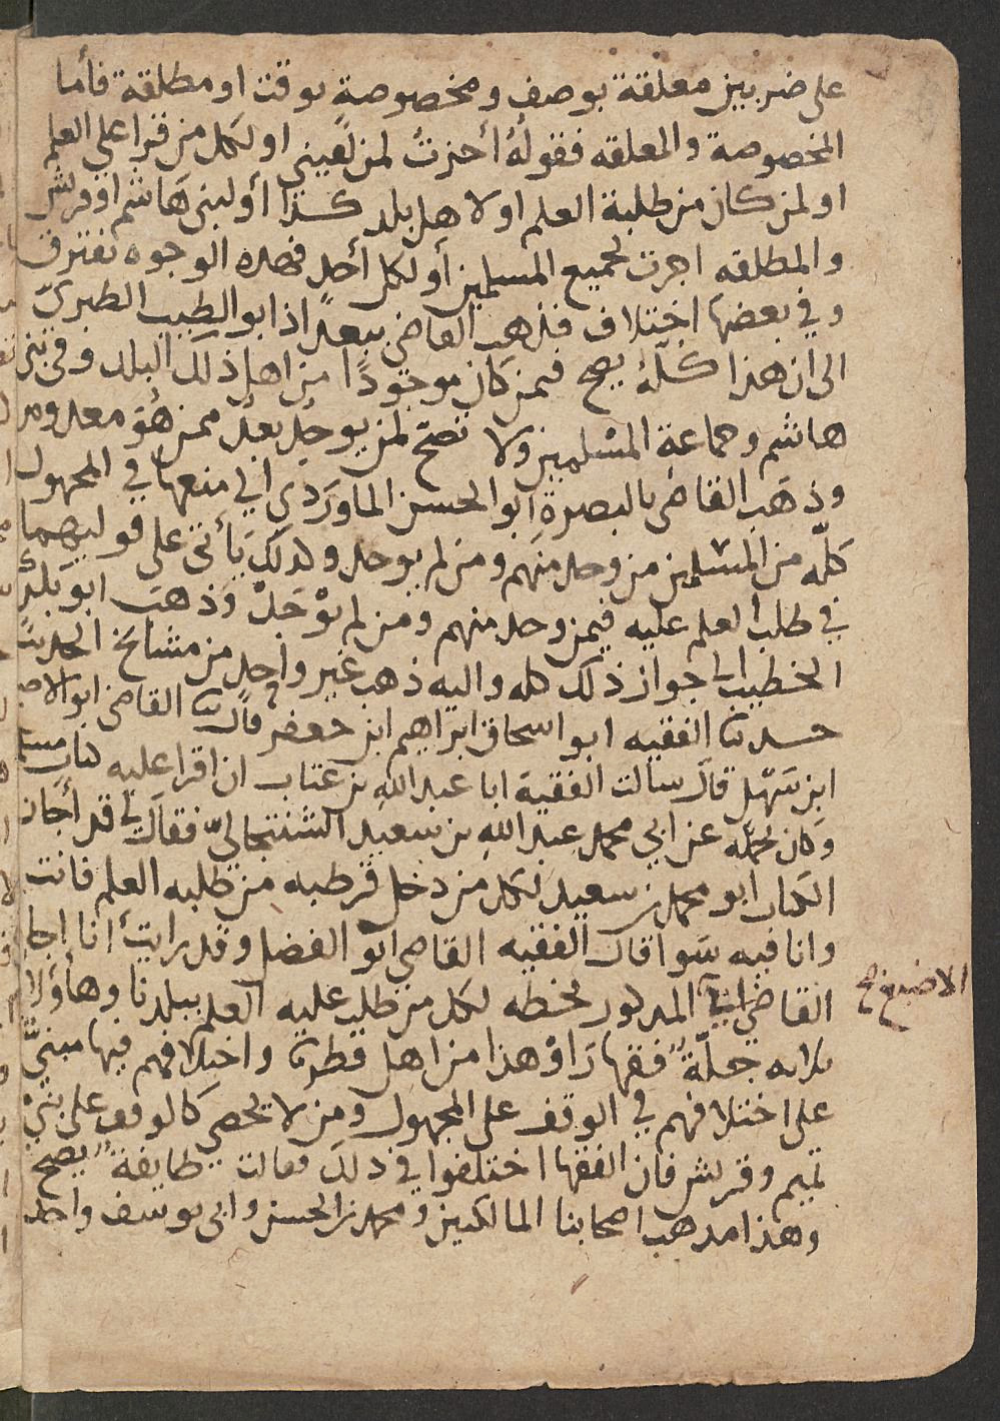 على ضربين معلقة بوصف ومخصوصة بوقت او مطلقة فأما
المخصوصة والمعلقه فقوله أجزتُ لمن لقيني او لكل من قرا علي العلم
او لمن كان من طلبة العلم او لاهل بلد كذا أو لبني هاشم او قريش
والمطلقه اجزت لجميع المسلمين أو لكل أحد فهذه الوجوه تفترق
وفي بعضها اختلاف فذهب القاضي ببغداذ ابو الطيب الطبري
الى ان هذا كلّه يصح فيمن كان موجودًا من اهل ذلك البلد وفي بني
هاشم وجماعة المسلمين ولا تصح لمن يوجد بعدُ ممن هو معدوم
وذهب القاضي بالبصرة ابو الحسن الماوردي الى منعها في المجهول
كلّه من المسلمين من وجد منهم ومن لم يوجد وكذلك يأتي على قوليهما
في طلب العلم عليه فيمن وجد منهم ومن لم يوجدْ وذهب ابو بكر
الخطيب الى جواز ذلك كله واليه ذهب غير واحد من مشايخ الحديث
حدثنا الفقيه ابو اسحاق ابراهيم ابن جعفر قال ثنا القاضي ابو الاصبغ
ابن سَهْل قال سالت الفقيه ابا عبد الله بن عتاب ان اقرا عليه كتاب مسلم
وكان يحمله عن ابي محمد عبد الله بن سعيد الشنتجالي فقال لي قد أجاز
الكتاب ابو محمد بن سعيد لكل من دخل قرطبه من طلبه العلم فانت
وانا فيه سوا قال الفقيه القاضي ابو الفضل وقد رايت أنا اجازة
القاضي المذكور بخطه لكل من طلب عليه العلم ببلدنا وهاؤلا
الاصبغ صح
ثلاثه جلّة فقها رَاوْ هذا من اهل قطرنا واختلافهم فيها مبنيّ
على اختلافهم في الوقف على المجهول ومن لا يحصى كالوقف على بني
تميم وقريش فان الفقها اختلفوا في ذلك فقالت طايفة يصح
وهذا مذهب اصحابنا المالكيين ومحمد بن الحسن وابي يوسف واحد